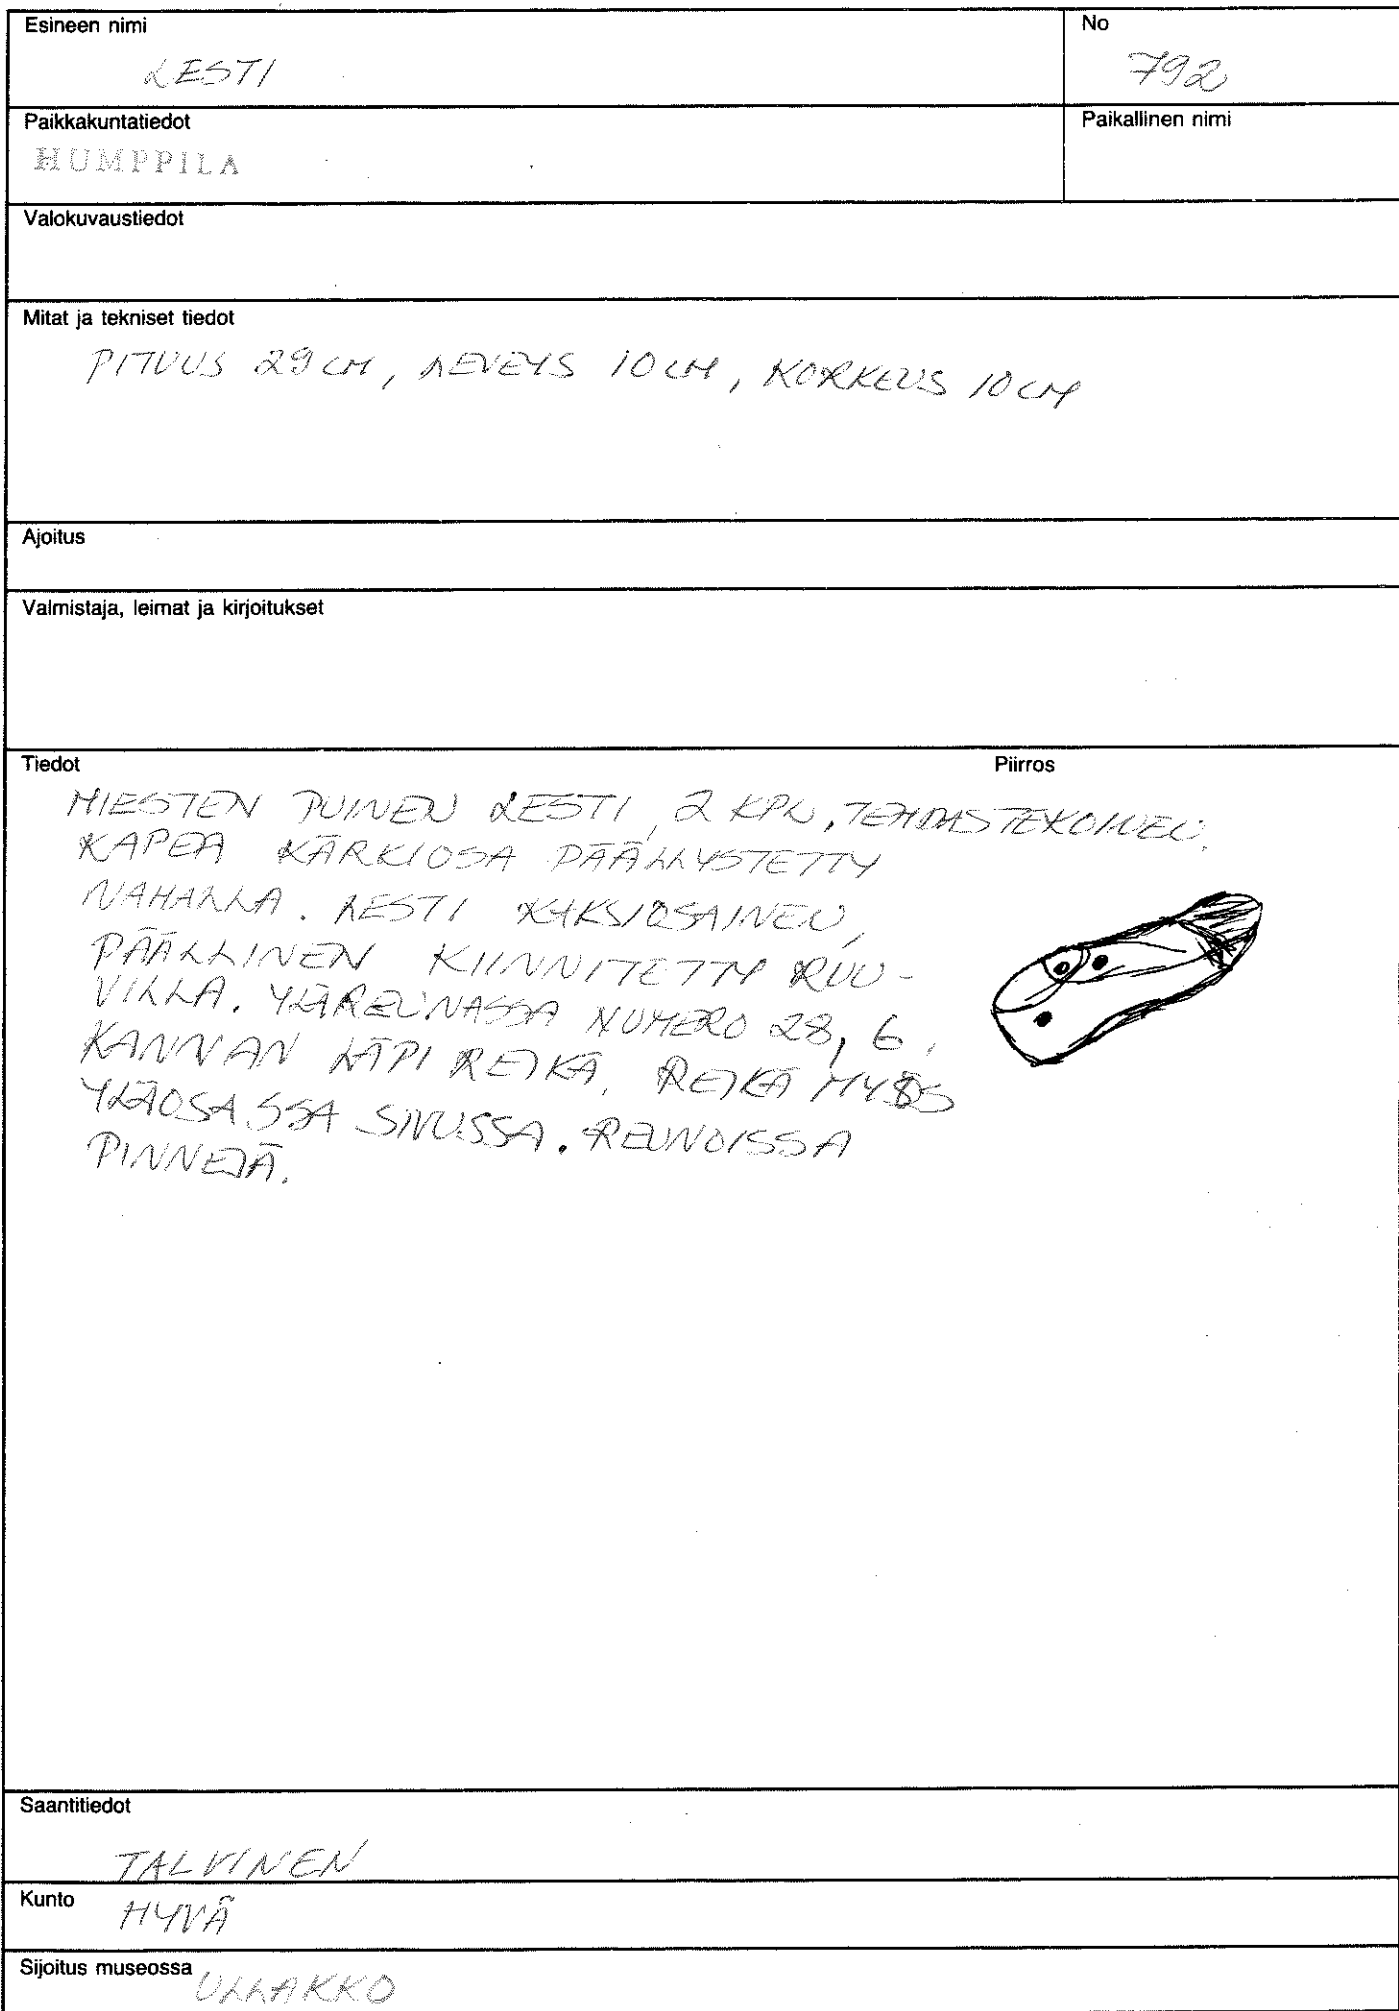 Esineen nimi
No
LESTI
792
Paikkakuntatiedot
Paikallinen nimi
HUMPPILA
Valokuvaustiedot
Mitat ja tekniset tiedot
PITUUS 29 CM, LEVEYS 10 CM, KORKEUS 10 CM
Ajoitus
Valmistaja, leimat ja kirjoitukset
Tiedot
Piirros
MIESTEN PUINEN LESTI, 2 KPL, TEHDASTEKOINEN.
KAPEA KÄRKIOSA PÄÄLLYSTETTY
NAHALLA. LESTI KAKSIOSAINEN,
PÄÄLLINEN KIINNITETTY RUU-
VILLA. YLÄREUNASSA NUMERO 28, 6.
KANNAN LÄPI REIKÄ. REIKÄ MYÖS
YLÄOSASSA SIVUSSA. REUNOISSA
PINNEJÄ.
Saantitiedot
TALVINEN
Kunto
HYVÄ
Sijoitus museossa
ULLAKKO